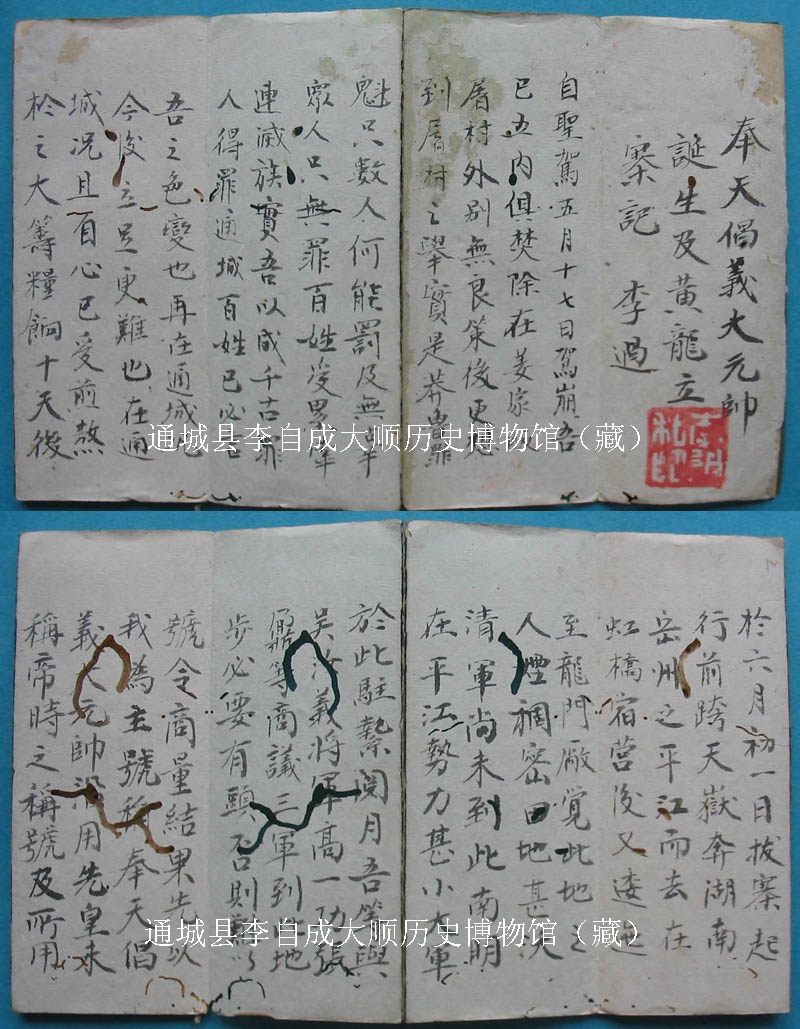 奉天倡義大元帥
誕生及黃龍立
寨記 李過
自聖駕五月十七日駕崩吾
已五內俱焚除在姜家
屠村外別無良策後更想
到屠村之舉實是莽魯罪
魁只數人何能罰及無辜
眾人只無罪百姓受累
連滅族實吾以成千古罪
人得罪通城百姓已必
吾之色變也再在通城
今後立足更難也在通
城況且百心已受煎熬
於之大籌糧餉十天後
於六月初一日拔寨起
行前跨天嶽奔湖南
岳州之平江而去在
虹橋宿營後又逶迤
至龍門廠覺此地之
人煙稠密田地甚
清軍尚未到此南明
在平江勢力甚小大軍
於此駐紮閱月吾等與
吳汝義將軍高一功張
鼐等商議三軍到此地
步必要有頭否則
號令商量結果先以
我為主號稱奉天倡
義大元帥沿用先皇未
稱帝時之稱號及所用
通城县李自成大顺历史博物馆（藏）
通城县李自成大顺历史博物馆（藏）